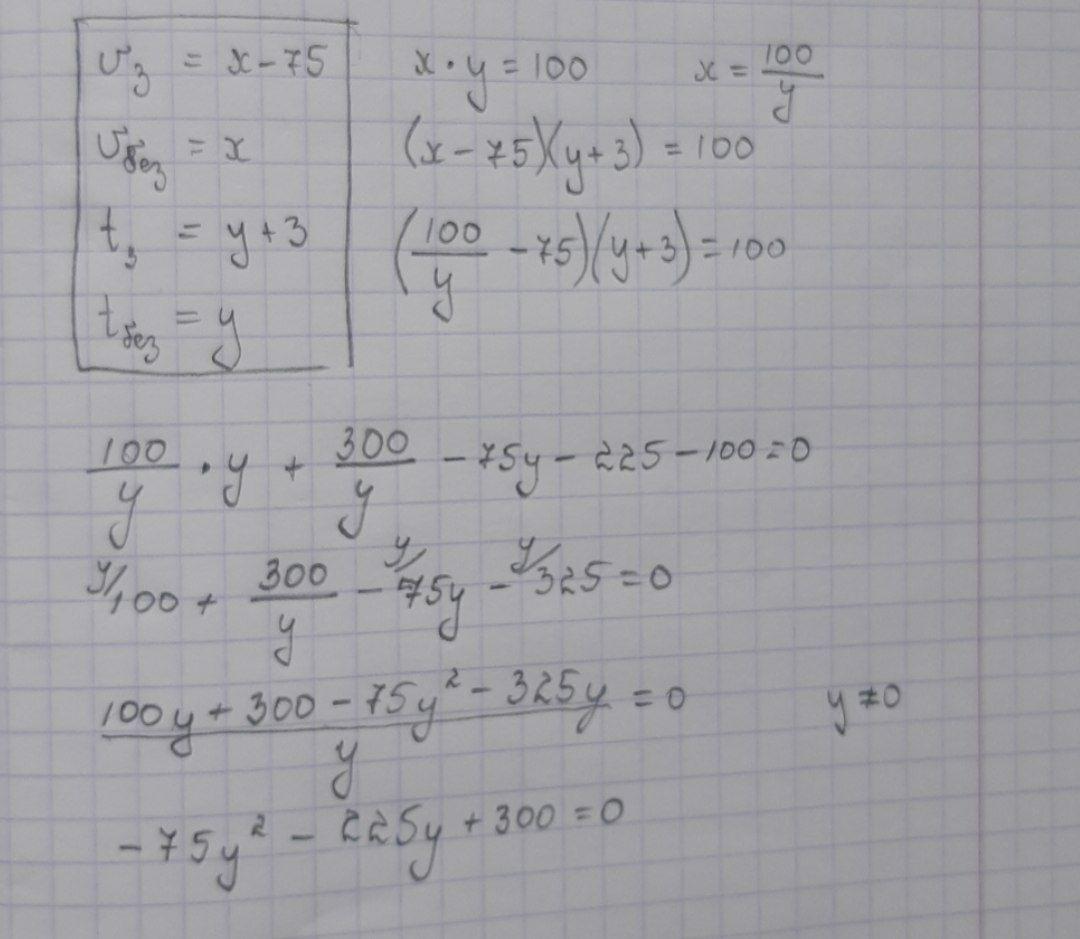 υ₃ = x - 75
υ_без = x
t₃ = y + 3
t_без = y
x · y = 100    x = 100/y
(x - 75)(y + 3) = 100
(100/y - 75)(y + 3) = 100
100/y · y + 300/y - 75y - 225 - 100 = 0
y/ 100 + 300/y - y/ 75y - y/ 325 = 0
(100y + 300 - 75y² - 325y)/y = 0    y ≠ 0
-75y² - 225y + 300 = 0